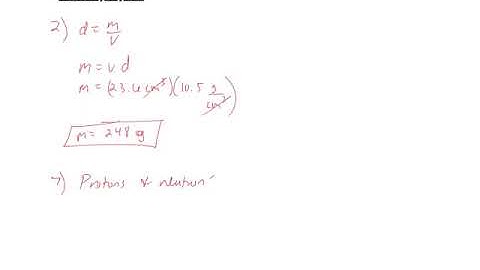 2) d = m/v
m = v d
m = (23.6 cm³)(10.5 g/cm³)
m = 248 g
7) Protons & neutron